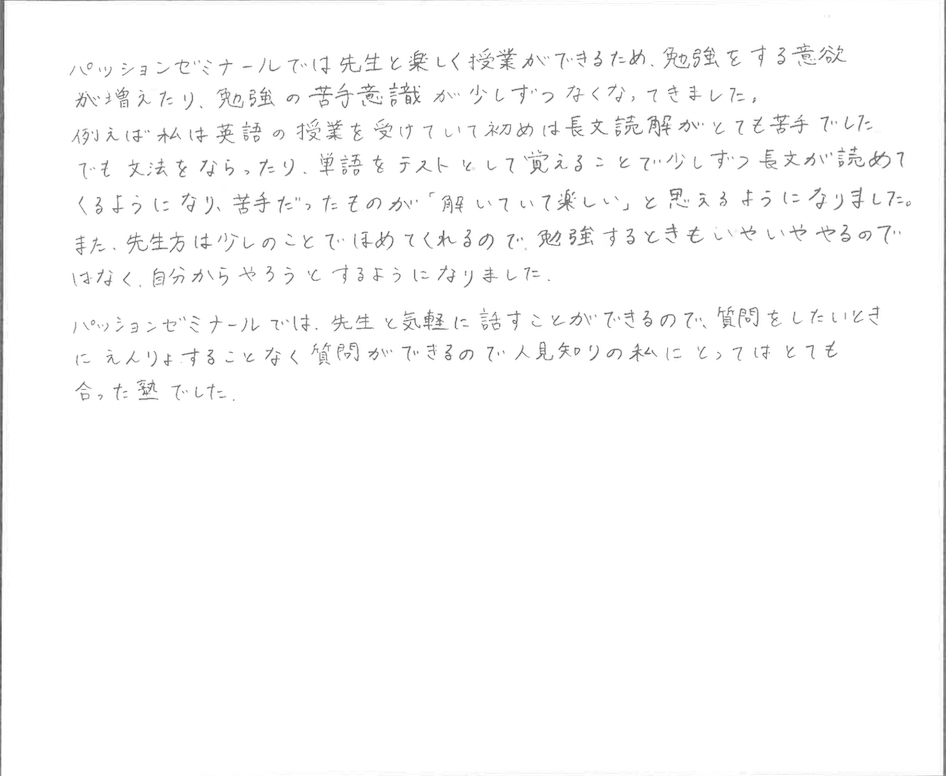 パッションゼミナールでは先生と楽しく授業ができるため、勉強をする意欲
が増えたり、勉強の苦手意識が少しずつなくなってきました。
例えば私は英語の授業を受けていて初めは長文読解がとても苦手でした
でも文法をならったり、単語をテストとして覚えることで少しずつ長文が読めて
くるようになり、苦手だったものが「解いていて楽しい」と思えるようになりました。
また、先生方は少しのことでほめてくれるので、勉強するときもいやいややるので
はなく、自分からやろうとするようになりました。
パッションゼミナールでは、先生と気軽に話すことができるので、質問をしたいとき
にえんりょすることなく質問ができるので人見知りの私にとってはとても
合った塾でした。